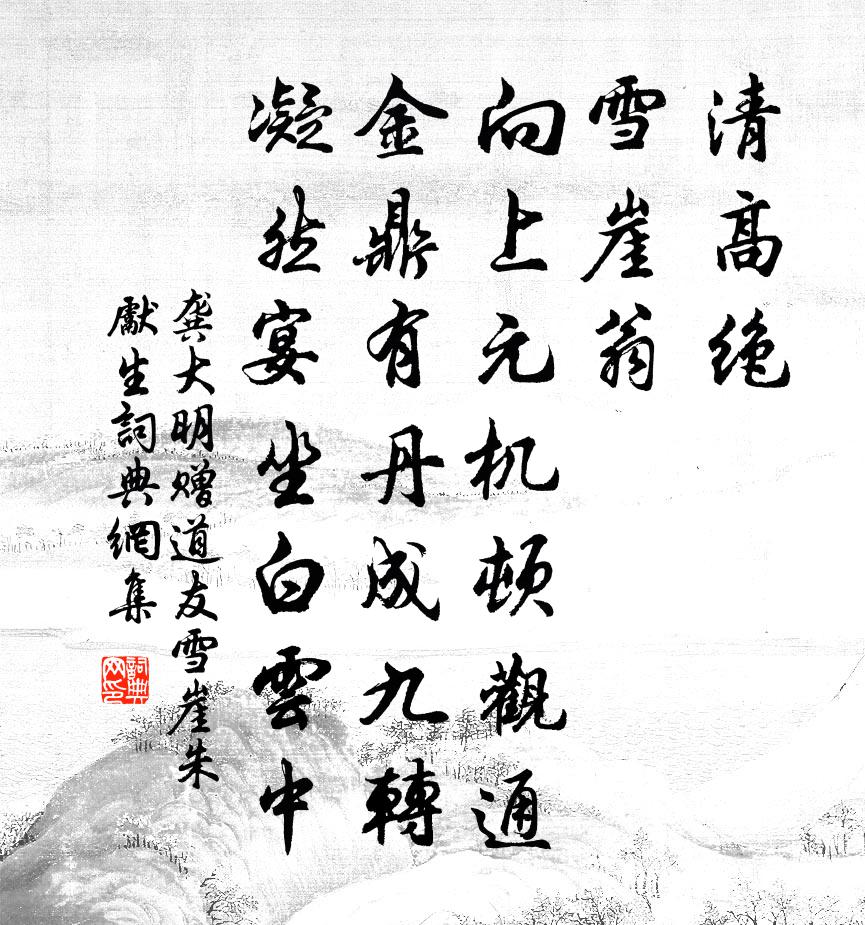 清高绝
雪崖翁
向上元机顿觀通
金鼎有丹成九轉
凝然宴坐白雲中
龚大明赠道友雪崖朱
獻生詞典網集
詞典
网印